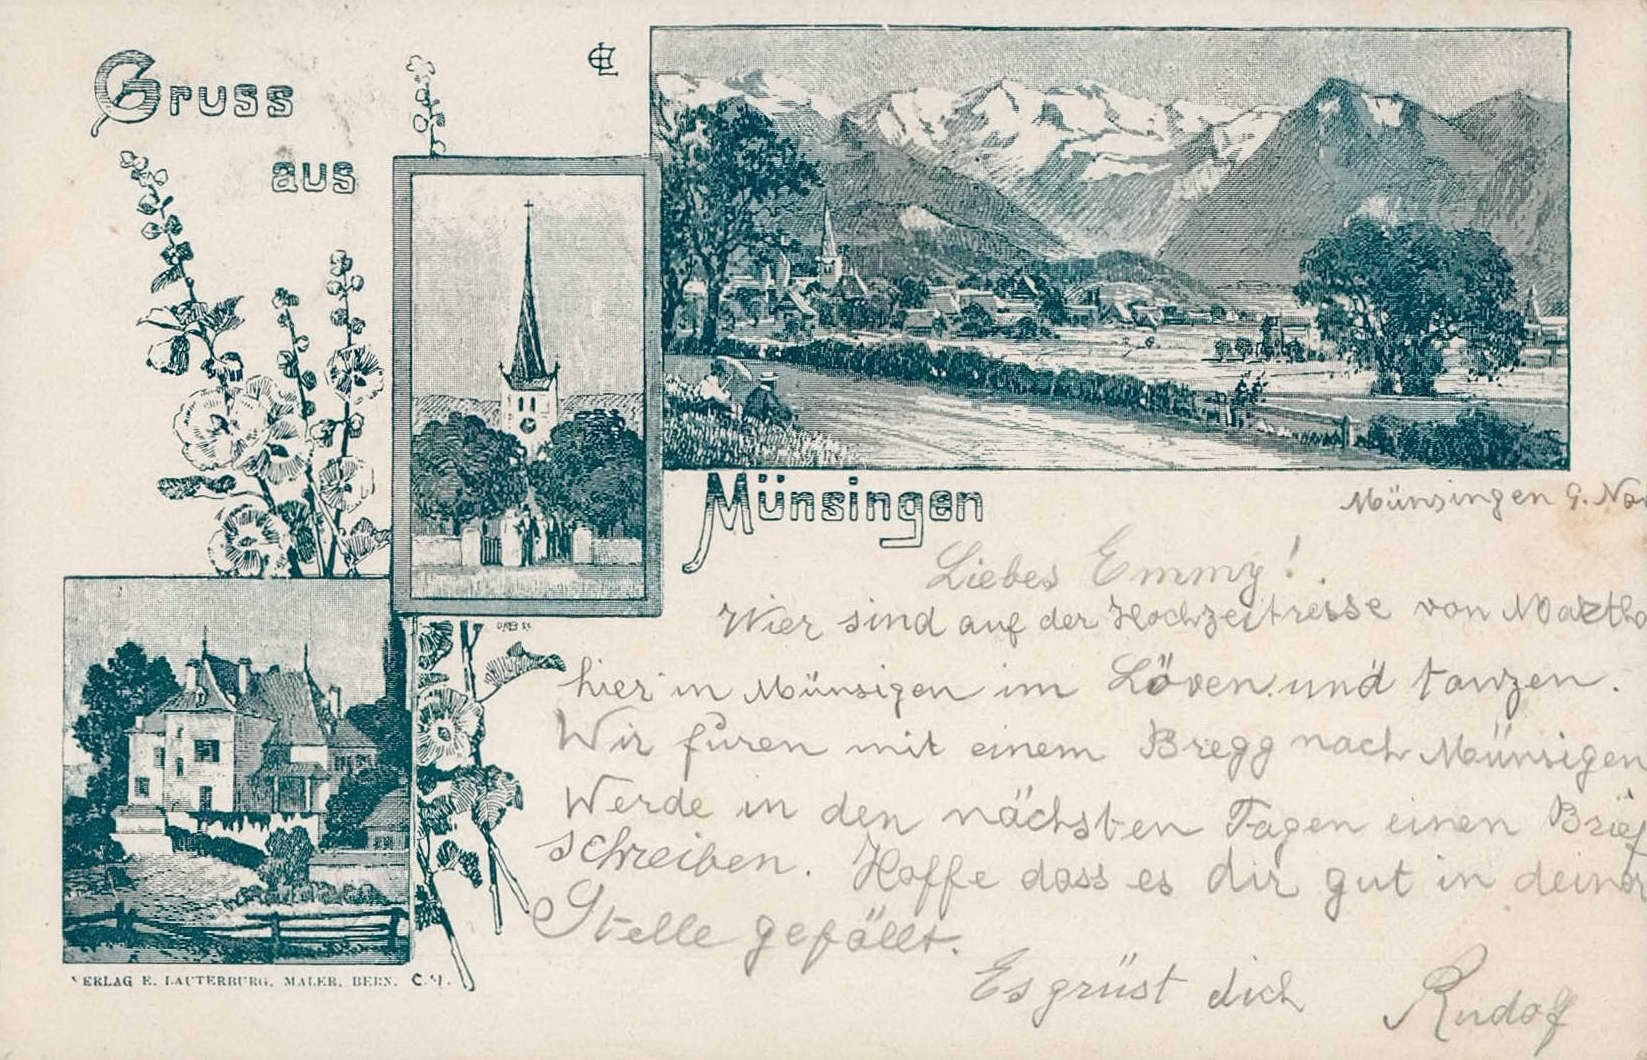 Gruss
aus
Münsingen
Münsingen 9. No
Liebes Emmy!
Wier sind auf der Hochzeitreise von Martha
hier in Münsigen im Löven und tanzen.
Wir furen mit einem Bregg nach Münsigen
Werde in den nächsten Tagen einen Brief
schreiben. Hoffe dass es dir gut in deiner
Stelle gefällt.
Es grüst dich Rudolf
VERLAG E. LAUTERBURG, MALER, BERN.